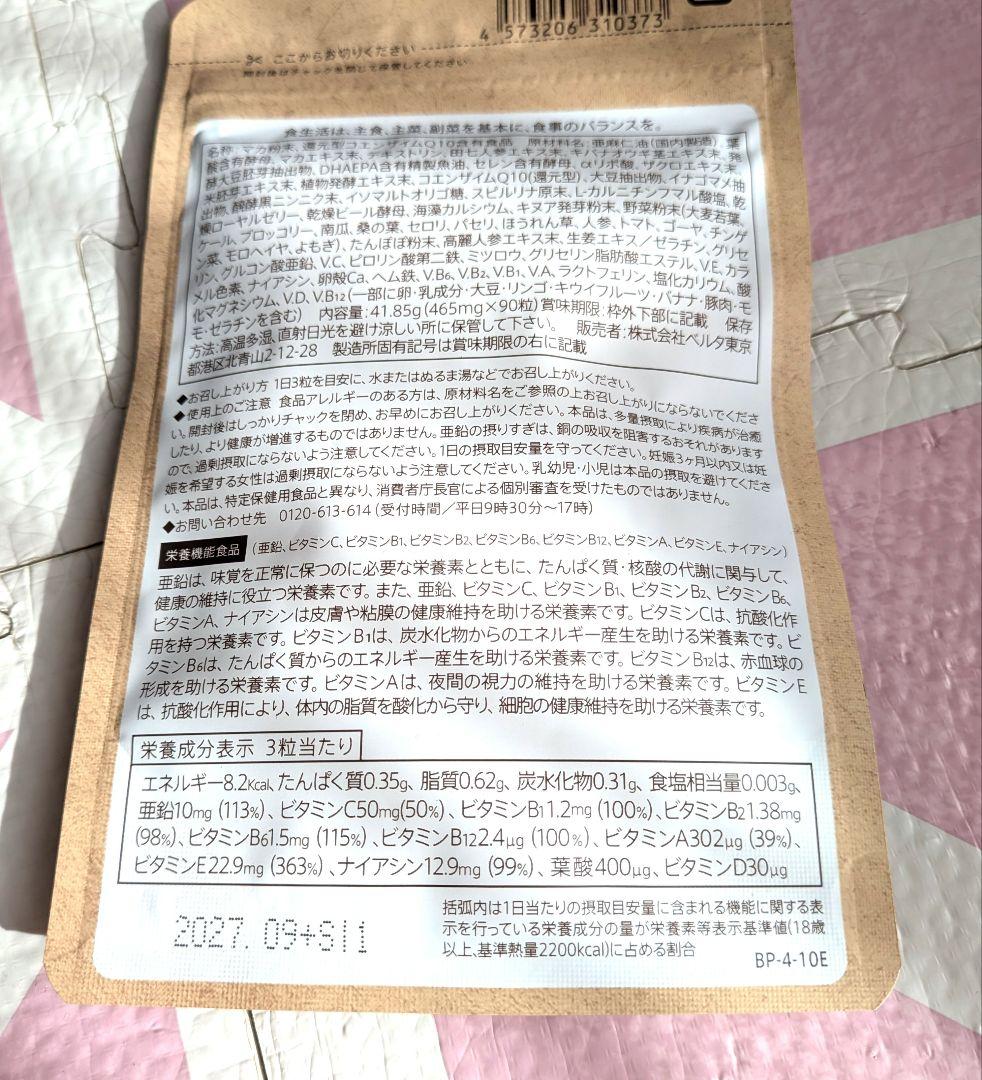 4 573206 310373
ここからお切りください
開封後はチャックを閉じて保管してください
食生活は、主食、主菜、副菜を基本に、食事のバランスを。
名称：マカ粉末、還元型コエンザイムQ10含有食品 原材料名：亜麻仁油(国内製造)、葉
酸含有酵母、マカエキス末、デキストリン、田七人参エキス末、キバナオウギ茎エキス末、発
酵大豆胚芽抽出物、DHAEPA含有精製魚油、セレン含有酵母、αリポ酸、ザクロエキス末、
米胚芽エキス末、植物発酵エキス末、コエンザイムQ10(還元型)、大豆抽出物、イナゴマメ抽
出物、醗酵黒ニンニク末、イソマルトオリゴ糖、スピルリナ原末、L-カルニチンフマル酸塩、乾
燥ローヤルゼリー、乾燥ビール酵母、海藻カルシウム、キヌア発芽粉末、野菜粉末(大麦若葉、
ケール、ブロッコリー、南瓜、桑の葉、セロリ、パセリ、ほうれん草、人参、トマト、ゴーヤ、チンゲ
ン菜、モロヘイヤ、よもぎ)、たんぽぽ粉末、高麗人参エキス末、生姜エキス／ゼラチン、グリセ
リン、グルコン酸亜鉛、V.C、ピロリン酸第二鉄、ミツロウ、グリセリン脂肪酸エステル、V.E、カラ
メル色素、ナイアシン、卵殻Ca、ヘム鉄、V.B₆、V.B₂、V.B₁、V.A、ラクトフェリン、塩化カリウム、酸
化マグネシウム、V.D、V.B₁₂(一部に卵・乳成分・大豆・リンゴ・キウイフルーツ・バナナ・豚肉・モ
モ・ゼラチンを含む) 内容量：41.85g(465mg×90粒) 賞味期限：枠外下部に記載 保存
方法：高温多湿、直射日光を避け涼しい所に保管して下さい。 販売者：株式会社ベルタ東京
都港区北青山2-12-28 製造所固有記号は賞味期限の右に記載
◆お召し上がり方 1日3粒を目安に、水またはぬるま湯などでお召し上がりください。
◆使用上のご注意 食品アレルギーのある方は、原材料名をご参照の上お召し上がりにならないでくださ
い。開封後はしっかりチャックを閉め、お早めにお召し上がりください。本品は、多量摂取により疾病が治癒
したり、より健康が増進するものではありません。亜鉛の摂りすぎは、銅の吸収を阻害するおそれがあります
ので、過剰摂取にならないよう注意してください。1日の摂取目安量を守ってください。妊娠3ヶ月以内又は妊
娠を希望する女性は過剰摂取にならないよう注意してください。乳幼児・小児は本品の摂取を避けてくださ
い。本品は、特定保健用食品と異なり、消費者庁長官による個別審査を受けたものではありません。
◆お問い合わせ先 0120-613-614 (受付時間／平日9時30分～17時)
栄養機能食品 (亜鉛、ビタミンC、ビタミンB₁、ビタミンB₂、ビタミンB₆、ビタミンB₁₂、ビタミンA、ビタミンE、ナイアシン)
亜鉛は、味覚を正常に保つのに必要な栄養素とともに、たんぱく質・核酸の代謝に関与して、
健康の維持に役立つ栄養素です。また、亜鉛、ビタミンC、ビタミンB₁、ビタミンB₂、ビタミンB₆、
ビタミンA、ナイアシンは皮膚や粘膜の健康維持を助ける栄養素です。ビタミンCは、抗酸化作
用を持つ栄養素です。ビタミンB₁は、炭水化物からのエネルギー産生を助ける栄養素です。ビ
タミンB₆は、たんぱく質からのエネルギー産生を助ける栄養素です。ビタミンB₁₂は、赤血球の
形成を助ける栄養素です。ビタミンAは、夜間の視力の維持を助ける栄養素です。ビタミンE
は、抗酸化作用により、体内の脂質を酸化から守り、細胞の健康維持を助ける栄養素です。
栄養成分表示 3粒当たり
エネルギー8.2Kcal、たんぱく質0.35g、脂質0.62g、炭水化物0.31g、食塩相当量0.003g、
亜鉛10mg (113%)、ビタミンC50mg(50%)、ビタミンB₁1.2mg (100%)、ビタミンB₂1.38mg
(98%)、ビタミンB₆1.5mg (115%)、ビタミンB₁₂2.4μg (100%)、ビタミンA302μg (39%)、
ビタミンE22.9mg (363%)、ナイアシン12.9mg (99%)、葉酸400μg、ビタミンD30μg
2027.09+S11
括弧内は1日当たりの摂取目安量に含まれる機能に関する表
示を行っている栄養成分の量が栄養素等表示基準値(18歳
以上、基準熱量2200kcal)に占める割合
BP-4-10E